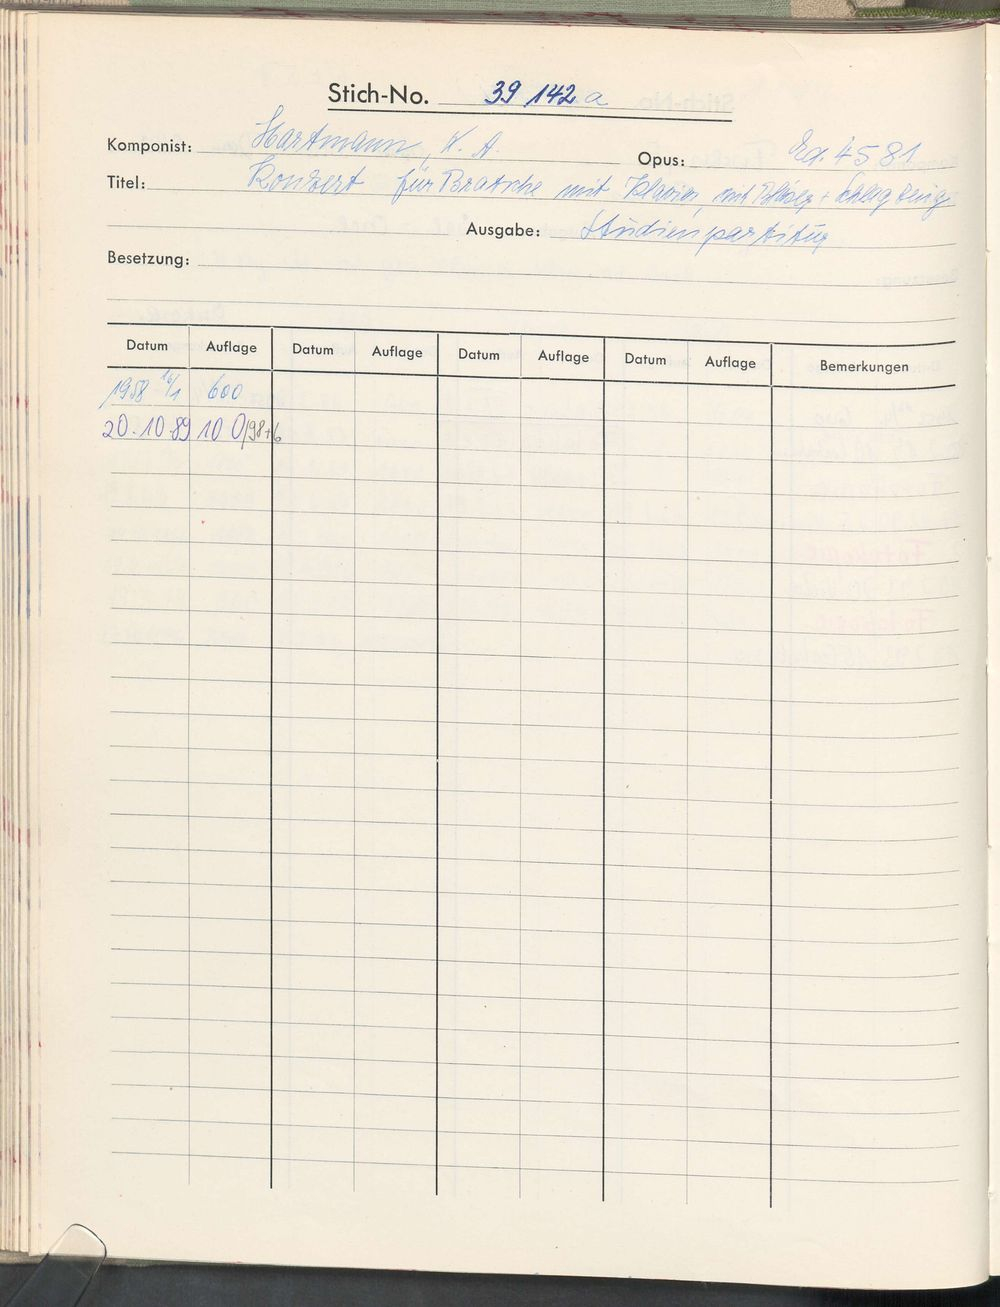 Stich-No. 39 142 a
Komponist: Hartmann, K. A. Opus: Ed. 4581
Titel: Konzert für Bratsche mit Klavier, mit Bläser + Schlagzeug
Ausgabe: Studienpartitur
Besetzung:
Datum Auflage Datum Auflage Datum Auflage Datum Auflage Bemerkungen
1958 16/1 600
20.10.89 100/98+6